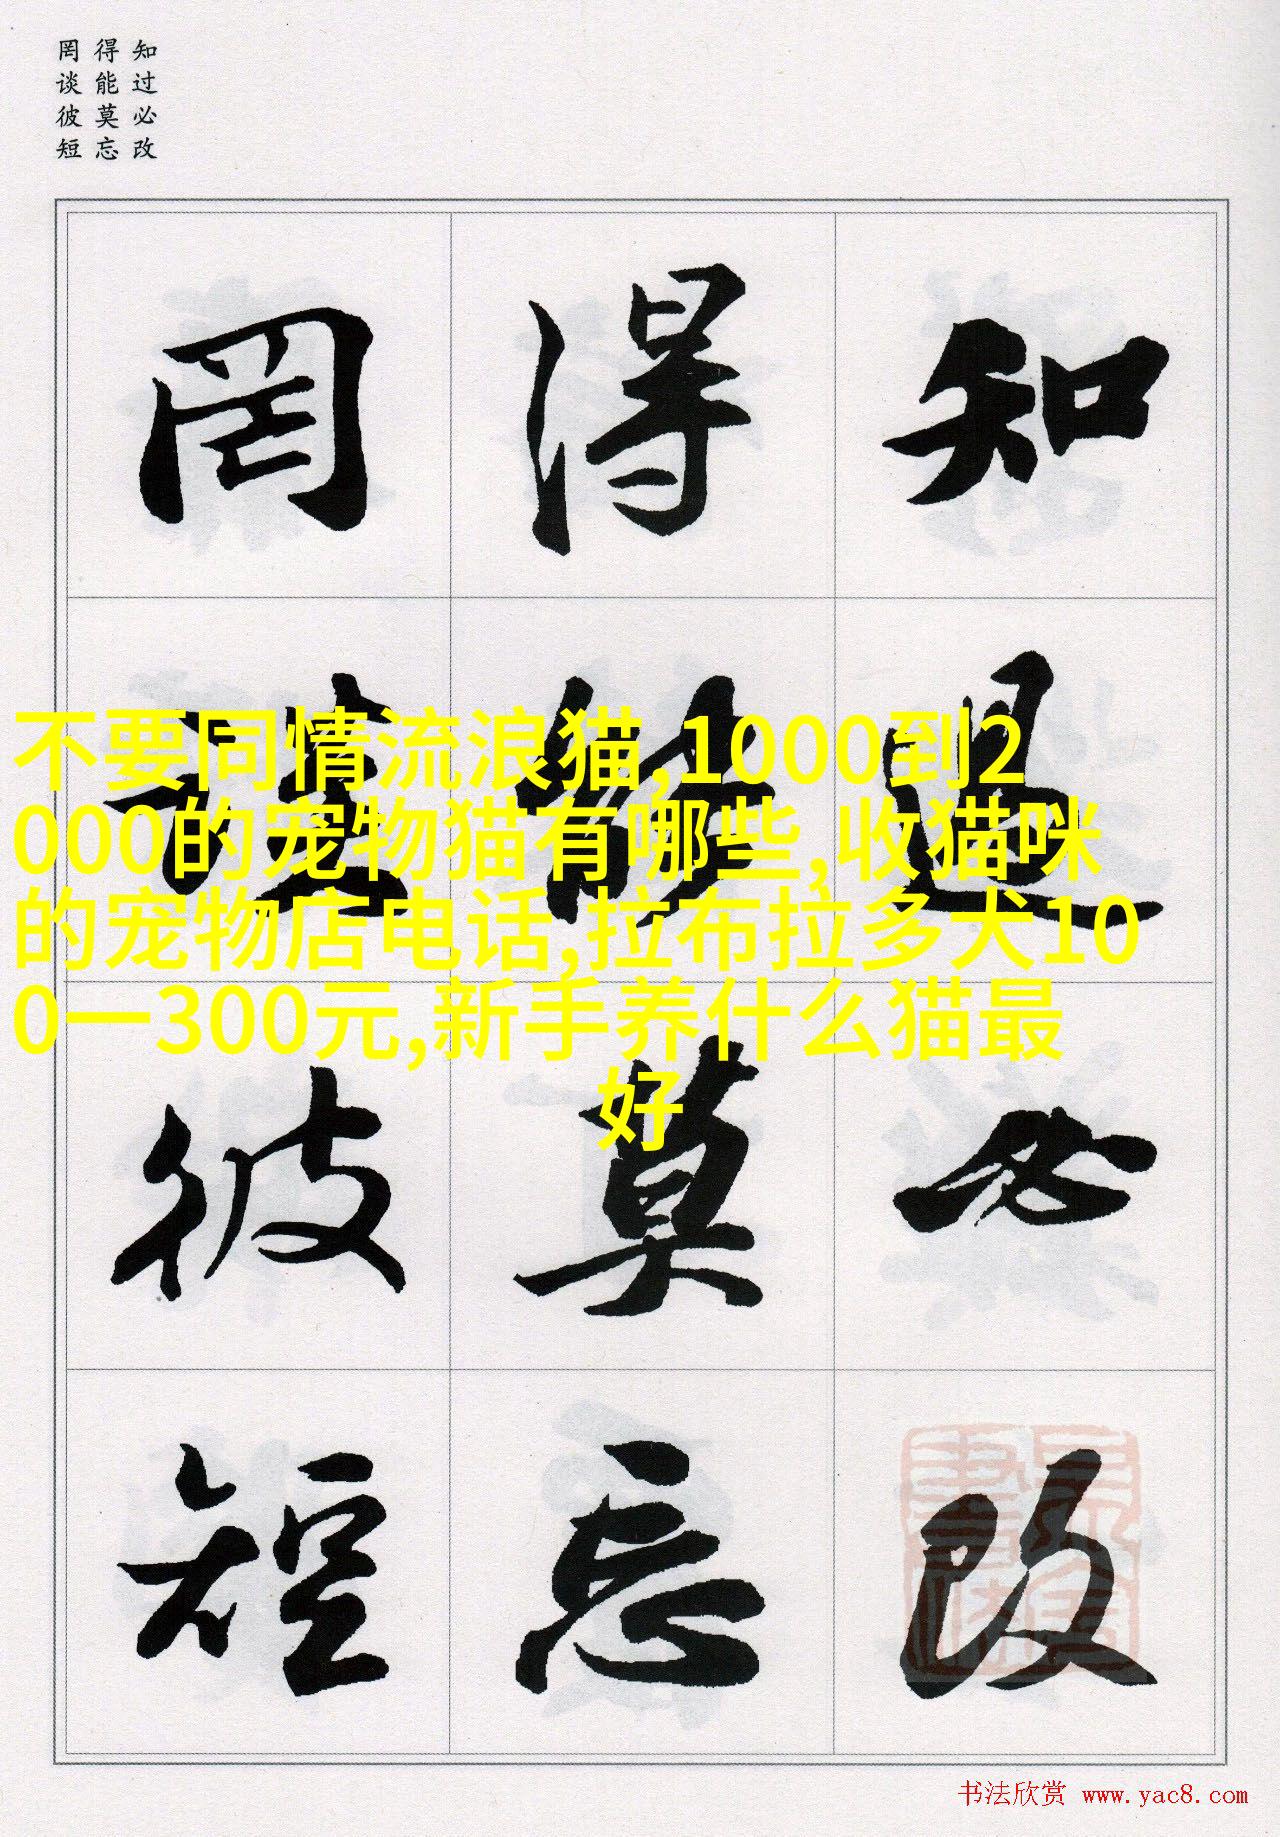 知过必改
得能莫忘
罔谈彼短
知过必改
得能莫忘
罔谈彼短
不要同情流浪猫,1000到2
000的宠物猫有哪些,收猫咪
的宠物店电话,拉布拉多犬10
0一300元,新手养什么猫最
好
书法欣赏 www.yac8.com